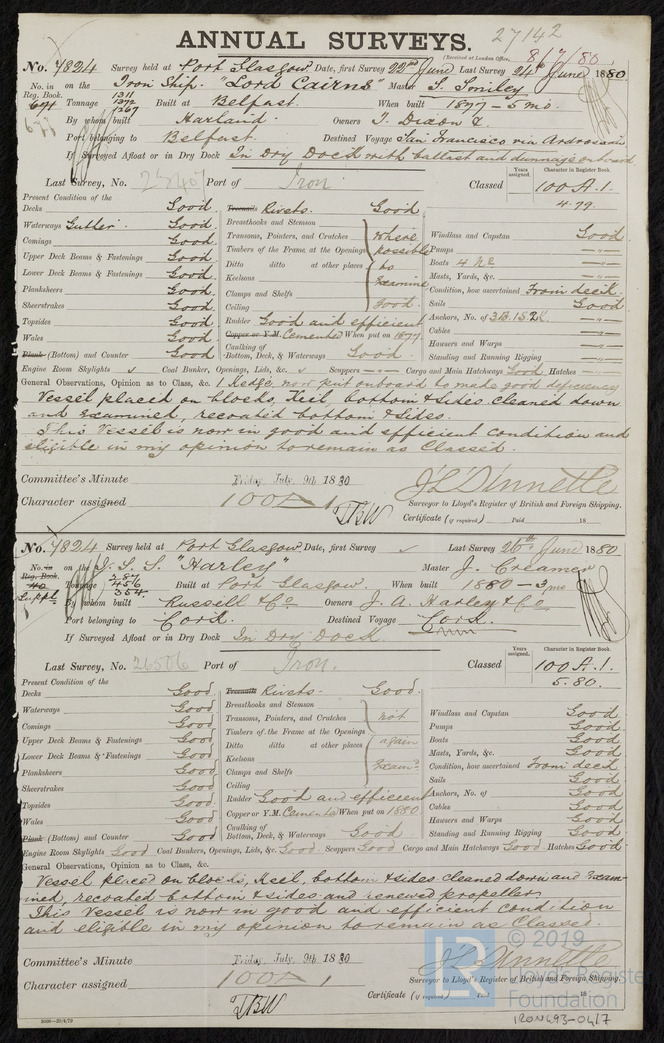 27142
ANNUAL SURVEYS.
(Received at London Office, 8/7/80
No. 7824 Survey held at Port Glasgow Date, first Survey 22nd June Last Survey 24th June 1880
No. in on the Iron Ship. "Lord Cairns" Master S. Smiley
Reg. Book.
671 Tonnage 1311 1372 1267 Built at Belfast. When built 1877 - 5 mo.
By whom built Harland. Owners T. Dixon &
Port belonging to Belfast. Destined Voyage San Francisco via Ardrossan
If Surveyed Afloat or in Dry Dock In Dry Dock with ballast and dunnage onboard
Last Survey, No. Port of Iron Classed Years assigned. Character in Register Book. 100 A.1.
4.79.
Present Condition of the
Decks Good Treenails Rivets. Good
Waterways Gutter. Good Breasthooks and Stemson
Comings Good Transoms, Pointers, and Crutches where Windlass and Capstan Good
Upper Deck Beams & Fastenings Good Timbers of the Frame at the Openings possible Pumps "
Lower Deck Beams & Fastenings Good Ditto ditto at other places to Boats 4 No "
Planksheers Good Keelsons examine Masts, Yards, &c. "
Sheerstrakes Good Clamps and Shelfs good. Condition, how ascertained From deck.
Topsides Good Ceiling Sails Good
Wales Good Rudder Good and efficient Anchors, No. of 3B.1S.2K. "
Plank (Bottom) and Counter Good Copper or Y.M. Cemented When put on 1877 Cables "
Caulking of Bottom, Deck, & Waterways Good. Hawsers and Warps "
Standing and Running Rigging "
Engine Room Skylights ✓ Coal Bunker, Openings, Lids, &c. ✓ Scuppers " Cargo and Main Hatchways Good Hatches "
General Observations, Opinion as to Class, &c. 1 Kedge, now put onboard to make good deficiency
Vessel placed on blocks, Keel, bottom & sides cleaned down
and examined, recoated bottom & sides.
This Vessel is now in good and efficient condition and
eligible in my opinion to remain as Classed.
Committee's Minute Friday July, 9th 1880
Character assigned 100 A 1
Surveyor to Lloyd's Register of British and Foreign Shipping.
Certificate (if required) Paid 18
No. 7824 Survey held at Port Glasgow Date, first Survey ✓ Last Survey 26th June 1880
No. in on the I. S. S. "Harley" Master J. Creamer
Reg. Book.
40 Tonnage 587 456 354. Built at Port Glasgow. When built 1880 - 3 mo
Suppl. By whom built Russell & Co Owners J. A. Harley & Co
Port belonging to Cork. Destined Voyage Cork.
If Surveyed Afloat or in Dry Dock In Dry Dock.
Last Survey, No. 26506 Port of Iron. Classed Years assigned. Character in Register Book. 100 A.1.
5.80.
Present Condition of the
Decks Good Treenails Rivets. Good.
Waterways Good Breasthooks and Stemson
Comings Good Transoms, Pointers, and Crutches not Windlass and Capstan Good
Upper Deck Beams & Fastenings Good Timbers of the Frame at the Openings Pumps Good
Lower Deck Beams & Fastenings Good Ditto ditto at other places again Boats Good
Planksheers Good Keelsons Masts, Yards, &c. Good
Sheerstrakes Good Clamps and Shelfs examd Condition, how ascertained From deck
Topsides Good Ceiling Sails Good
Wales Good Rudder Good and efficient Anchors, No. of Good
Plank (Bottom) and Counter Good Copper or Y.M. Cemented When put on 1880 Cables Good
Caulking of Bottom, Deck, & Waterways Good Hawsers and Warps Good
Standing and Running Rigging Good
Engine Room Skylights Good Coal Bunkers, Openings, Lids, &c. Good Scuppers Good Cargo and Main Hatchways Good Hatches Good
General Observations, Opinion as to Class, &c.
Vessel placed on blocks, Keel, bottom & sides cleaned down and exam-
ined, recoated bottom & sides and renewed propeller.
This Vessel is now in good and efficient condition
and eligible in my opinion to remain as Classed.
Committee's Minute Friday July, 9th 1880
Character assigned 100 A 1
Surveyor to Lloyd's Register of British and Foreign Shipping.
Certificate (if required) 18
LR
© 2019
Lloyd's Register
Foundation
IRON493-0417